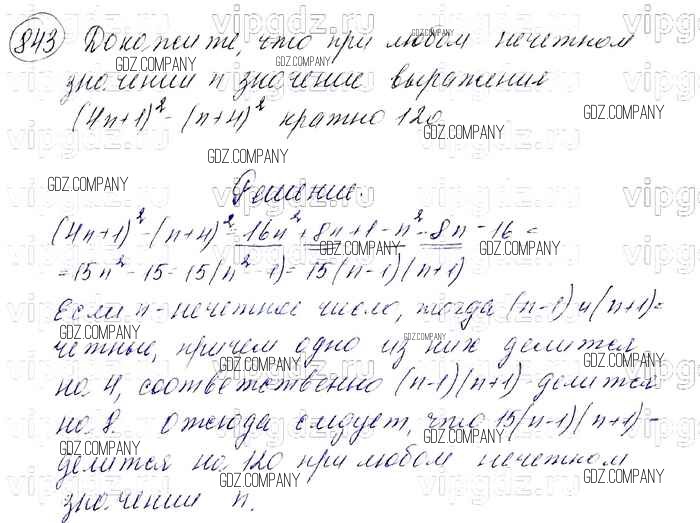 843 Докажите, что при любом нечетном
значении n значение выражения
(4n+1)² - (n+4)² кратно 120
Решение.
(4n+1)² - (n+4)² = 16n² + 8n + 1 - n² - 8n - 16 =
= 15n² - 15 = 15(n² - 1) = 15(n-1)(n+1)
Если n - нечетное число, тогда (n-1) и (n+1) =
четные, причем одно из них делится
на 4, соответственно (n-1)(n+1) делится
на 8. Отсюда следует, что 15(n-1)(n+1) -
делится на 120 при любом нечетном
значении n.